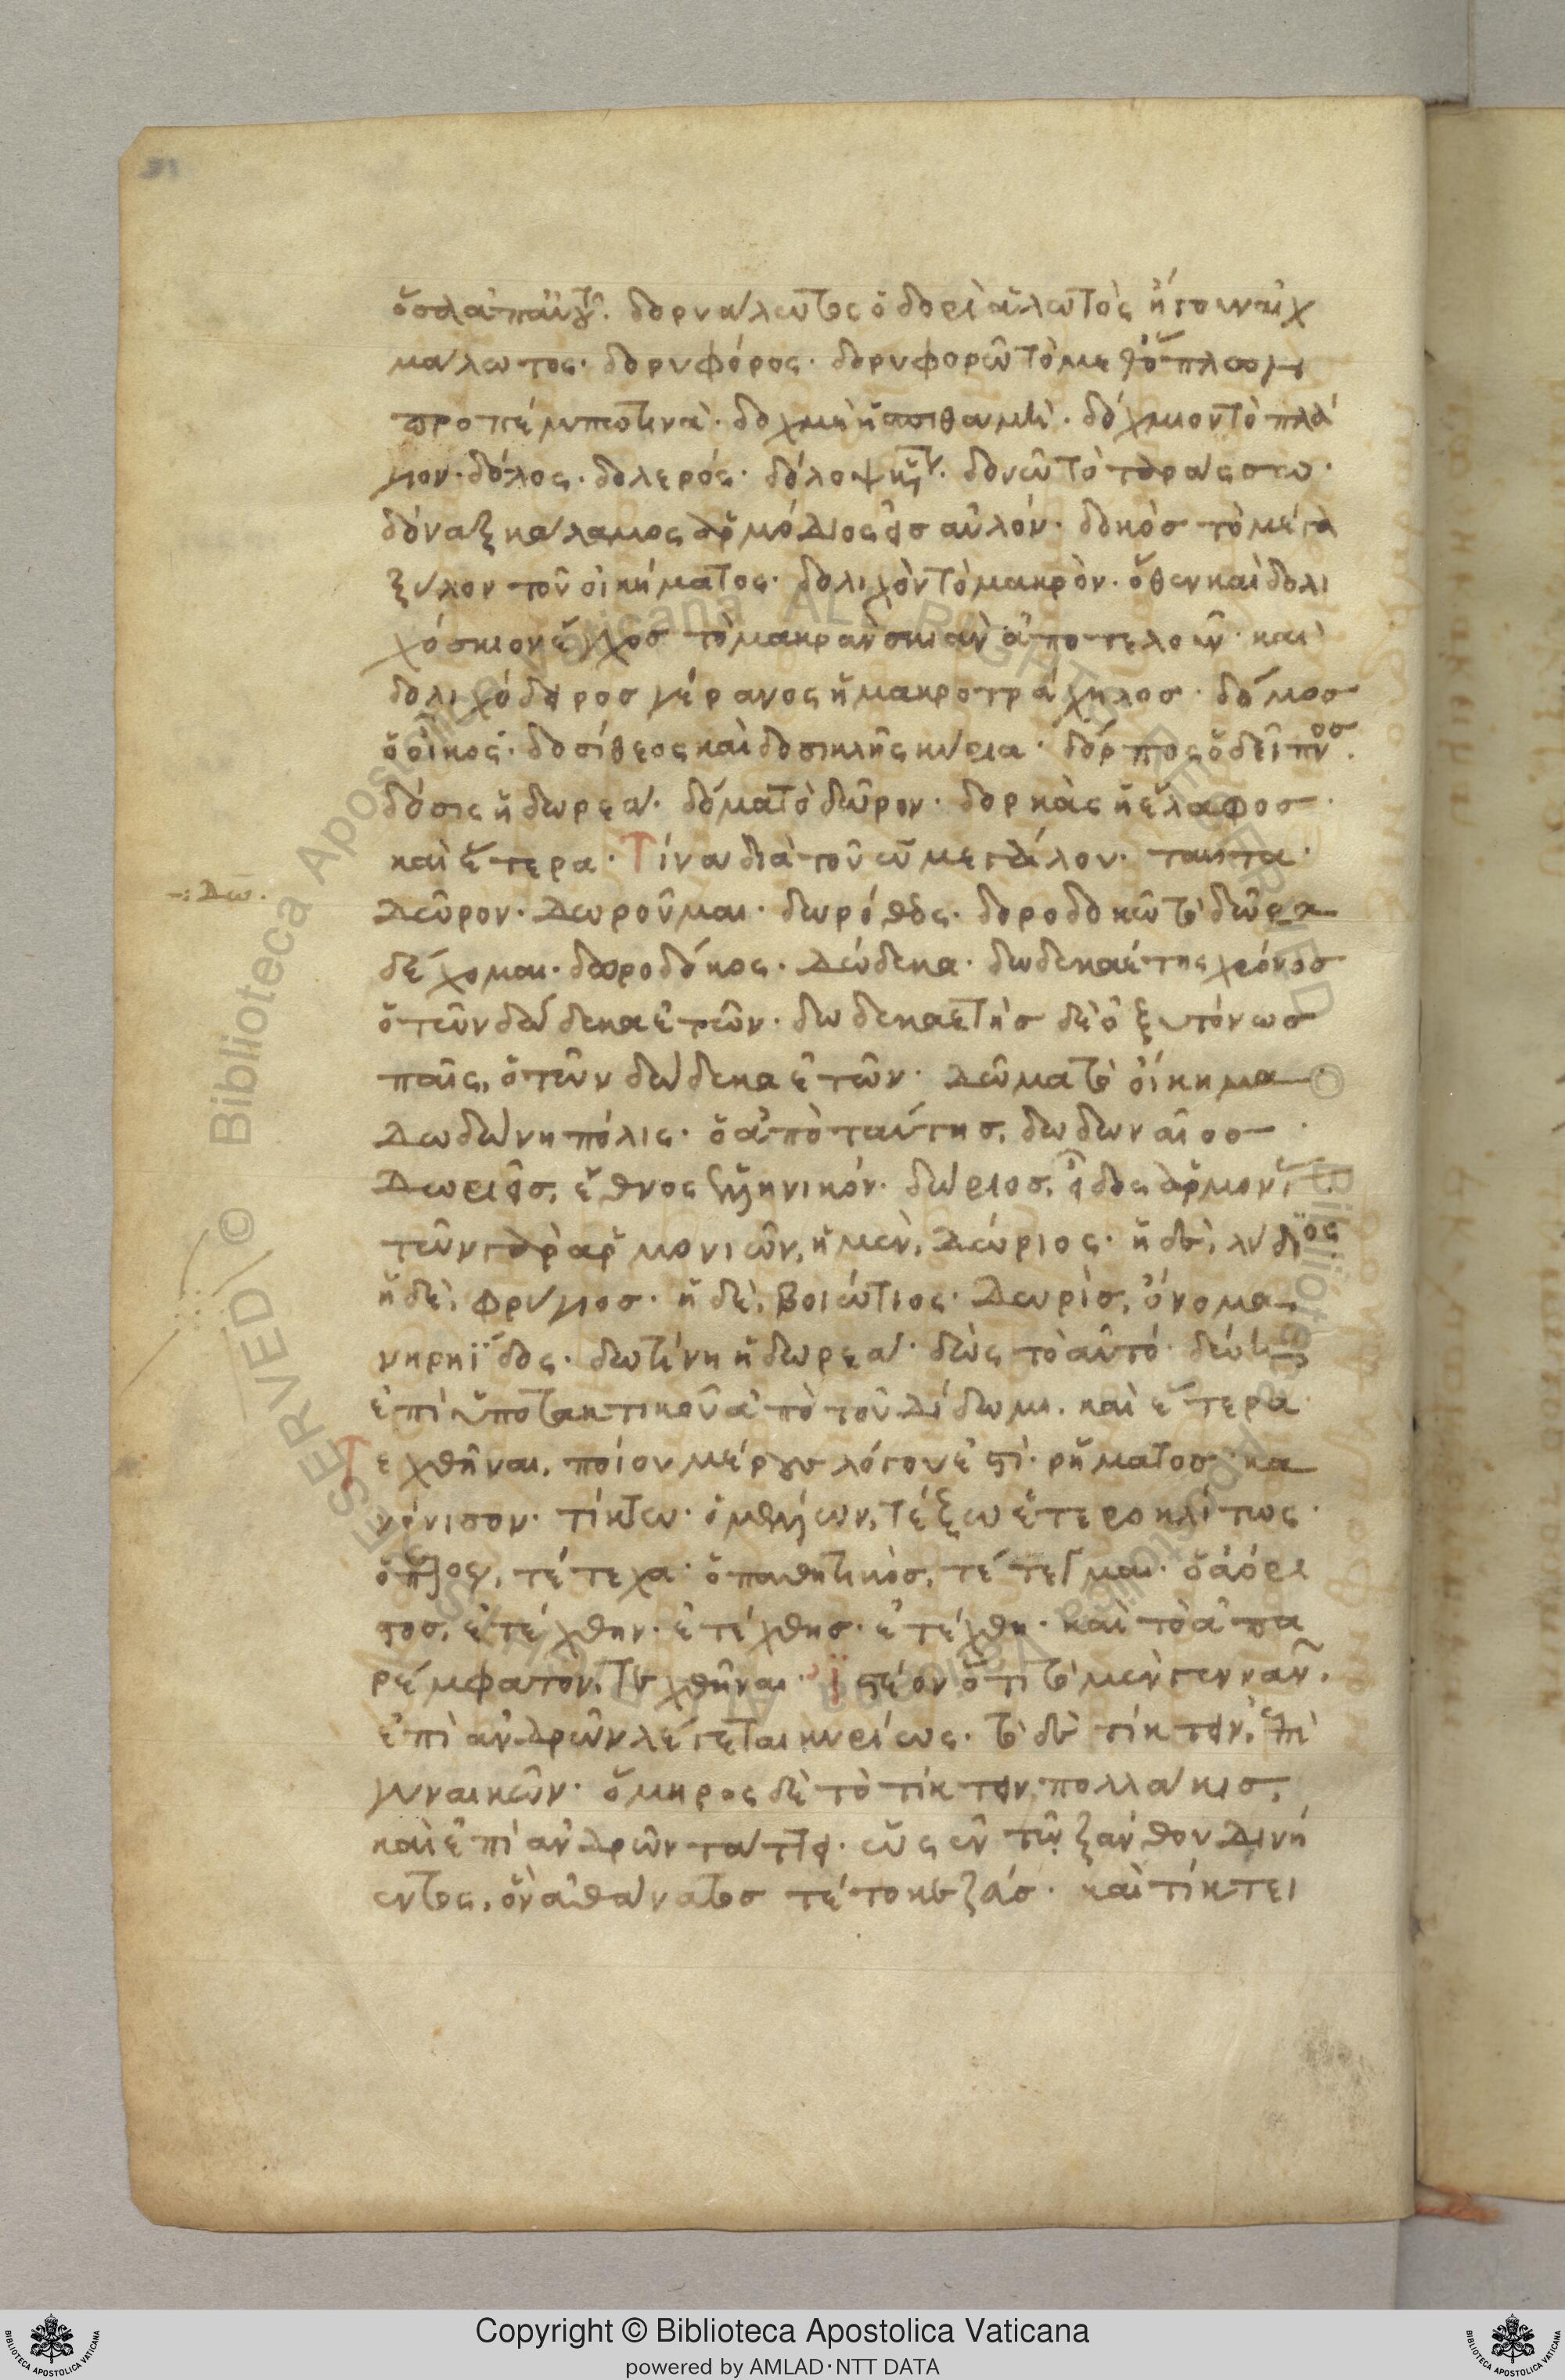 δορυάλωτος ὁ δορὶ ἁλωτὸς ἤγουν αἰχ
μάλωτος· δορυφόρος· δορυφορῶ τὸ μεθ' ὅπλων
προπέμπω τινά· δοχμὴ ἡ σπιθαμή· δόχμιον τὸ πλά
γιον· δόλος· δολερός· δόλοψ δονῶ τὸ ταράσσω·
δόναξ κάλαμος ἁρμόδιος εἰς αὐλόν· δοκὸς τὸ μέγα
ξύλον τοῦ οἰκήματος· δολιχὸν τὸ μακρὸν· ὅθεν καὶ δολι
χόσκιον ἔγχος τὸ μακρὰν σκιὰν ἀποτελοῦν· καὶ
δολιχόδειρος γέρανος ἡ μακροτράχηλος· δόμος
ὁ οἶκος· δοσίθεος καὶ δοσικλῆς κύρια· δόρπος ὁ δεῖπνος.
δόσις ἡ δωρεά· δόμα τὸ δῶρον· δορκὰς ἡ ἔλαφος·
καὶ ἕτερα· Τίνα διὰ τοῦ ω μεγάλου· ταῦτα·
-:Δω.
Δῶρον· Δωροῦμαι· δωρόθεος· δοροδοκῶ τὸ δῶρα
δέχομαι· δωροδόκος· Δώδεκα· δωδεκαέτης χρόνος
ὁ τῶν δώδεκα ἐτῶν· δωδεκαετὴς δὲ ὀξυτόνως
παῖς, ὁ τῶν δώδεκα ἐτῶν· Δῶμα τὸ οἴκημα·
Δωδώνη πόλις· ὁ ἀπὸ ταύτης, δωδωναῖος·
Δωριεῖς, ἔθνος ἑλληνικόν· δώριος, εἶδος ἁρμονίας·
τῶν γὰρ ἁρμονιῶν, ἡ μὲν, Δώριος· ἡ δὲ, λύδιος
ἡ δὲ, φρύγιος· ἡ δὲ, βοιώτιος· Δωρὶς, ὄνομα
νηρηΐδος· δωτίνη ἡ δωρεά· δὼς τὸ αὐτό· δώη
ἐπὶ ὑποτακτικοῦ ἀπὸ τοῦ Δίδωμι. καὶ ἕτερα·
Τεχθῆναι, ποῖον μέρους λόγου ἐστὶ· ῥήματος· κα
νόνισον· τίκτω· ὁ μέλλων, τέξω ἑτεροκλίτως·
ὁ τέτεχα· ὁ παθητικὸς, τέτεγμαι· ὁ ἀόρι
στος, ἐτέχθην· ἐτέχθης· ἐτέχθη· καὶ τὸ ἀπα
ρέμφατον, τεχθῆναι· ἰστέον ὅτι τὸ μὲν γεννᾶν,
ἐπὶ ἀνδρῶν λέγεται κυρίως· τὸ δὲ τίκτειν, ἐπὶ
γυναικῶν· ὅμηρος δὲ τὸ τίκτειν πολλάκις,
καὶ ἐπὶ ἀνδρῶν τάττει· ὡς ἐν τῷ ξάνθου Δινή
εντος, ὃν ἀθάνατος τέτοκε ζάς· καὶ τίκτει
Copyright © Biblioteca Apostolica Vaticana
powered by AMLAD·NTT DATA